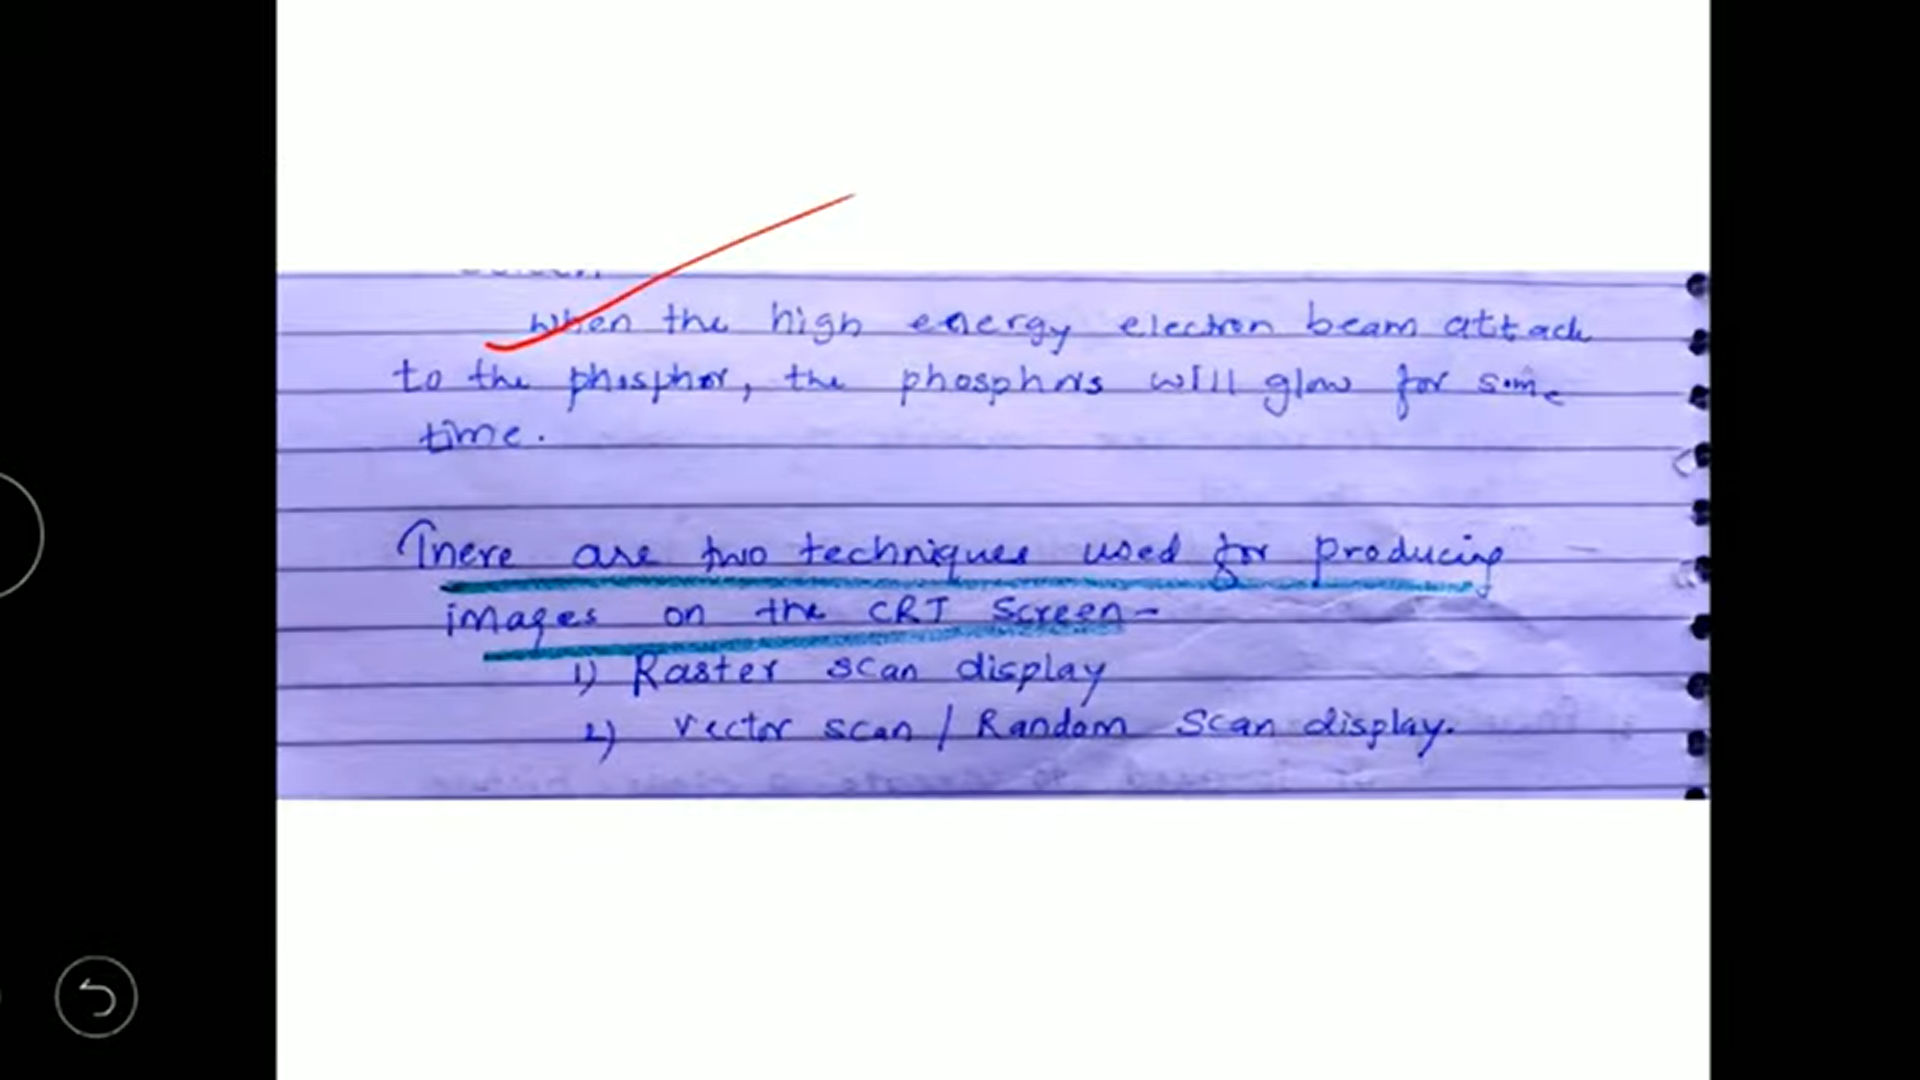 When the high energy electron beam attack
to the phosphor, the phosphors will glow for some
time.
There are two techniques used for producing
images on the CRT Screen-
1) Raster scan display
2) Vector scan / Random Scan display.